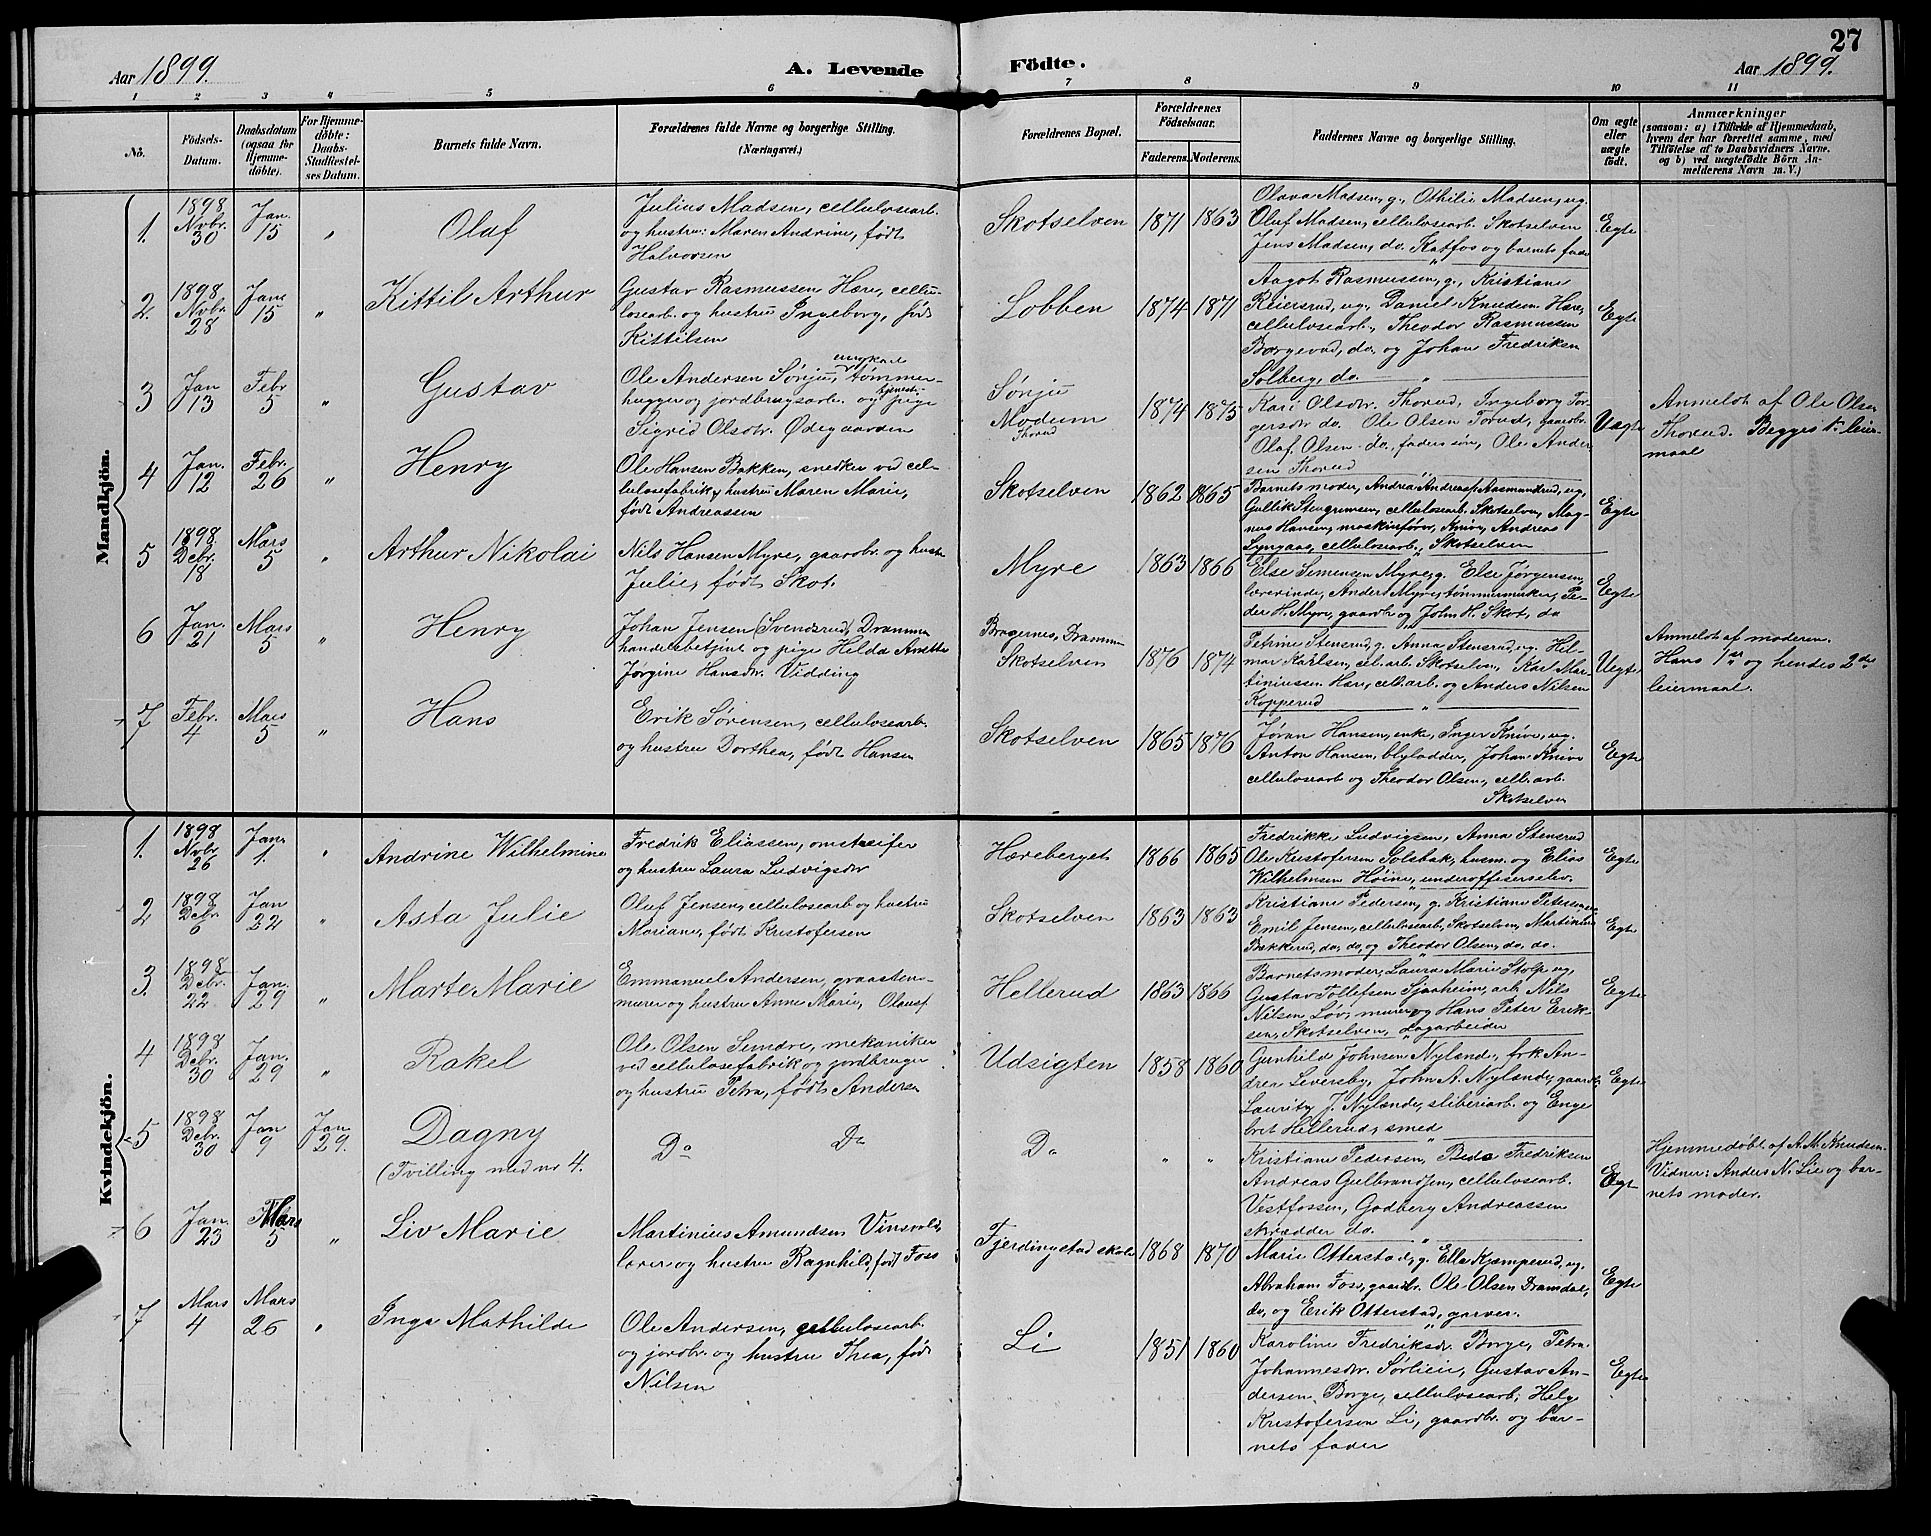 27
Aar 1899.
A. Levende Födte.
Aar 1899.
1 2 3 4 5 6 7 8 9 10 11
No.
Födsels-Datum.
Daabsdatum (ogsaa for Hjemme-døbte).
For Hjemme-døbte: Daabs-Stadfæstel-ses Datum.
Barnets fulde Navn.
Forældrenes fulde Navne og borgerlige Stilling.
(Næringsvei.)
Forældrenes Bopæl.
Forældrenes Födselsaar.
Faderens. Moderens.
Faddernes Navne og borgerlige Stilling.
Om ægte eller uægte födt.
Anmærkninger
(saasom: a) i Tilfælde af Hjemmedaab,
hvem der har forrettet samme, med
Tilföielse af to Daabsvidners Navne.
og b) ved uægtefödte Börn An-
melderens Navn m. V.)
Mandkjön.
1. 1898 Novbr. 30
Jan. 15
"
Olaf
Julius Madsen, cellulosearb.
og hustru: Maren Andrine, født
Halvorsen
Skotselven
1871 1863
Olava Madsen, g., Othilie Madsen, ug.
Oluf Madsen, cellulosearb. Skotselven
Jens Madsen, do. Katfos og barnets fader
Egte
2. 1898 Novbr. 28
Jan. 15
"
Kittil Arthur
Gustav Rasmussen Hære, cellu-
losearb. og hustru Ingeborg, født
Kittilsen
Lobben
1874 1871
Aagot Rasmussen, g., Kristiane
Reiersrud, ug., Daniel Knudsen Hære,
cellulosearb., Theodor Rasmussen
Borgerud, do. og Johan Fredriksen
Solberg, do.
Egte
3 Jan 13
Febr 5
"
Gustav
Ole Andersen Sønju, ungkarl tømmer-
hugger og jordbrugsarb. og tjenesti- pige
Sigrid Olsdtr. Ødegaarden
Sønju
Modum
Thorud
1874 1875
Kari Olsdtr. Thorud, Ingeborg Tor-
gersdtr do. Ole Olsen Torud, gaardbr.
Olaf Olsen do., faders søn, Ole Ander-
sen Thorud
Uegte
Anmeldt af Ole Olsen
Thorud. Begges 1ste leier-
maal
4 Jan. 12
Febr. 26
"
Henry
Ole Hansen Bakken, snedker ved cel-
lulosefabrik, hustru Maren Marie,
født Andreassen
Skotselven
1862 1865
Barnets moder, Andrea Andreasd. Aasmundrud, ug.
Gullik Stengrimsen, cellulosearb. Skotselven, Mag-
nus Hansen, maskinfører, Knive, Andreas
Lyngaas, cellulosearb., Skotselven
Egte
5 1898 Decbr. 18
Mars 5
"
Arthur Nikolai
Nils Hansen Myre, gaardbr. og hustru
Julie, født Skot.
Myre
1863 1866
Else Simensen Myre, g. Else Jørgensen,
lærerinde, Anders Myre, tømmermerker, Pe-
der H. Myre, gaardbr. og John H. Skot, do
Egte
6 Jan. 21
Mars 5
"
Henry
Johan Jensen (Svendsrud), Drammen
handelsbetjent og pige Hilda Anette
Jørgine Hansdtr. Vidding
Bragernes, Drammen
Skotselven
1876 1874
Petrine Stensrud, g. Anna Stensrud, ug. Hil-
mar Karlsen, cel.arb. Skotselven, Karl Mar-
tiniussen Hære, cell.arb. og Anders Nilsen
Kopperud
Uegte
Anmeldt af moderen.
Hans 1ste og hendes 2det
leiermaal.
7 Febr. 4
Mars 5
"
Hans
Erik Sørensen, cellulosearb.
og hustru Dorthea, født Hansen
Skotselven
1865 1876
Jøran Hansen, enke, Inger Knive, ug.
Anton Hansen, blylodder, Johan Knive
cellulosearb og Theodor Olsen, cell. arb.
Skotselven
Egte
Kvindekjön.
1. 1898 Novbr 26
Jan. 1.
"
Andrine Wilhelmine
Fredrik Eliassen, omstreifer
og hustru Laura Ludvigsdtr
Hæreberget
1866 1865
Fredrikke Ludvigsen, Anna Stensrud
Ole Kristofersen Solbak, husm. og Elias
Wilhelmsen Høine, underofficerselev.
Egte
2 1898 Decbr. 6
Jan 22
"
Asta Julie
Oluf Jensen, cellulosearb og hustru
Mariane, født Kristofersen
Skotselven
1863 1863
Kristiane Pedersen, g. Kristiane Petersen, ug
Emil Jensen, cellulosearb. Skotselven, Martinius
Bakkerud, do, do, og Theodor Olsen, do, do.
Egte
3. 1898 Decbr. 22
Jan. 29
"
Marte Marie
Emmanuel Andersen, graasten-
murer og hustru Anne Marie, Olausd
Hellerud
1863 1866
Barnets moder, Laura Marie Stolp ug,
Gustav Tollefsen Sjaaheim, arb. Nils
Nilsen Løv, murer og Hans Peter Erik-
sen, Skotselven, dagarbeider
Egte
4 1898 Decbr. 30
Jan. 29
"
Rakel
Ole Olsen Semdre, mekaniker
ved cellulosefabrik og jordbruger
og hustru Petra, født Andersen
Udsigten
1858 1860
Gunhild Johnsen Nylænde, frk An-
drea Leversby, John A. Nylænde, gaardbr.
Lauritz J. Nylænde, sliberiarb. og Enge
bret Hellerud, smed
Egte
5 1898 Decbr. 30
Jan 9
Jan 29.
Dagny
(Tvilling med nr 4.
Do Do
Do
" "
Kristiane Pedersen, Beda Fredriksen
Andreas Gulbrandsen, cellulosearb.
Vestfossen, Godberg Andreassen
skrædder do.
Egte
Hjemmedøbt af A. M. Knudsen
Vidner: Anders N. Lie og bar-
nets moder.
6 Jan. 23
Mars 5
"
Liv Marie
Martinius Amundsen Vinsvold,
lærer og hustru Ragnhild, født Foss
Fjerdingstad skole
1868 1870
Marie Otterstad, g. Ella Kjæmperud, ug.
Abraham Foss, gaardbr. Ole Olsen Dramdal,
do, og Erik Otterstad, garver.
Egte
7 Mars 4
Mars 26
"
Inga Mathilde
Ole Andersen, cellulosearb.
og jordbr. og hustru Thea, født
Nilsen
Li
1851 1860
Karoline Fredriksdr. Borge, Petra
Johannesdtr. Sørlieie, Gustav An-
dersen Borge, cellulosearb., Helge
Kristofersen Li, gaardbr. og bar-
nets fader
Egte